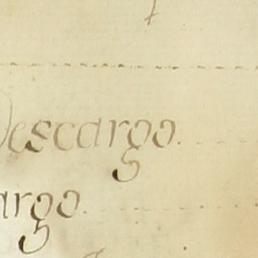 Descargo.
argo.